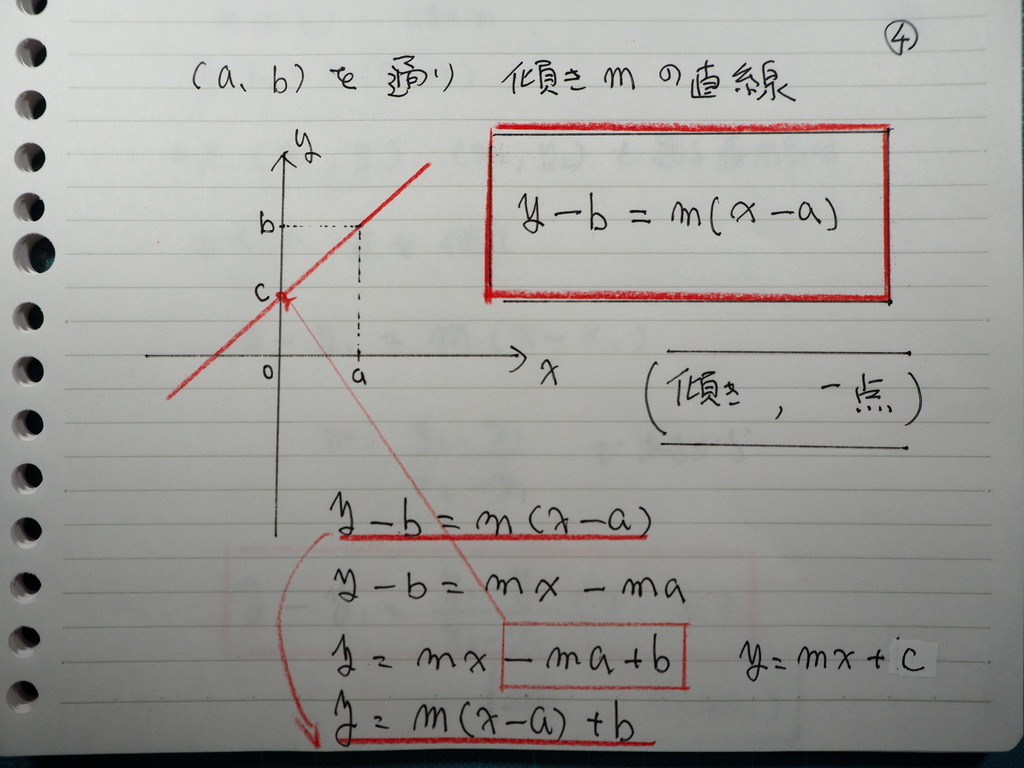 ④
(a、b) を通り 傾き m の直線
y
b
c
0
a
x
y-b = m(x-a)
(傾き , 一点)
y-b = m(x-a)
y-b = mx - ma
y = mx - ma + b y = mx + c
y = m(x-a) + b